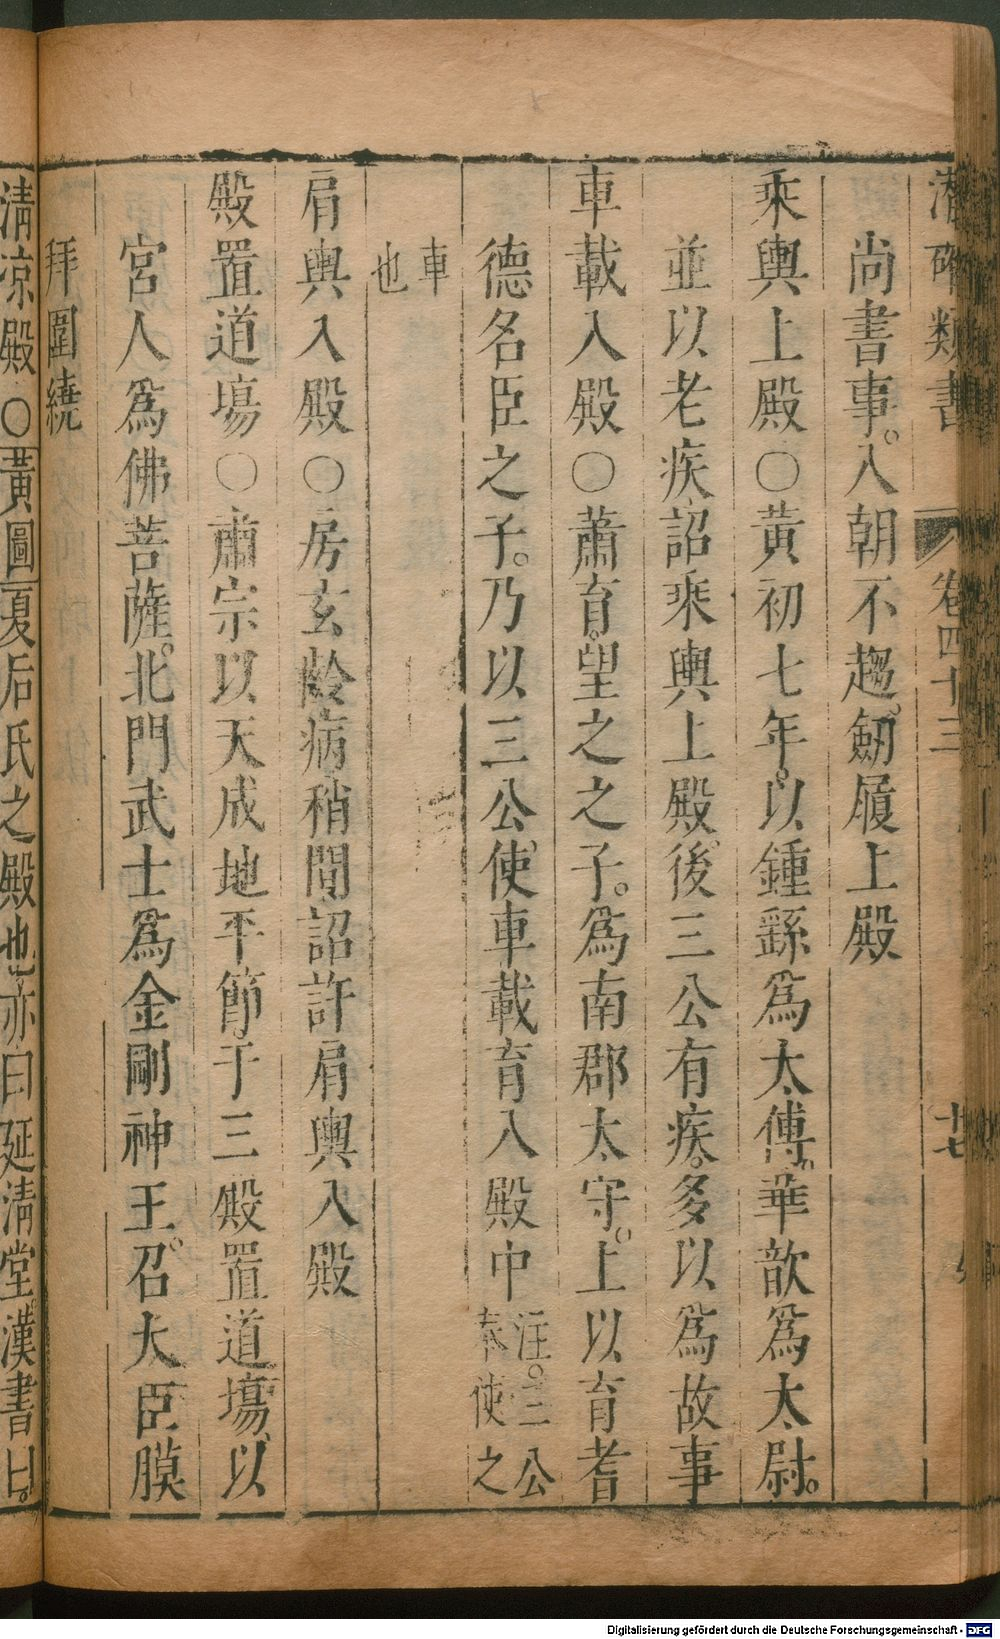 潛確類書 卷四十三 十七
尚書事。入朝不趨。劒履上殿
乘輿上殿〇黃初七年。以鍾繇爲太傅。華歆爲太尉。
並以老疾。詔乘輿上殿。後三公有疾。多以爲故事
車載入殿〇蕭育。望之之子。爲南郡太守。上以育耆
德名臣之子。乃以三公使車載育入殿中注。三公奉使之
車也
肩輿入殿〇房玄齡病稍間詔許肩輿入殿
殿置道塲〇肅宗以天成地平節。于三殿置道塲。以
宮人爲佛菩薩。北門武士爲金剛神王。召大臣膜
拜圍繞
清凉殿〇黃圖夏后氏之殿也亦曰延清堂。漢書曰。
Digitalisierung gefördert durch die Deutsche Forschungsgemeinschaft - DFG